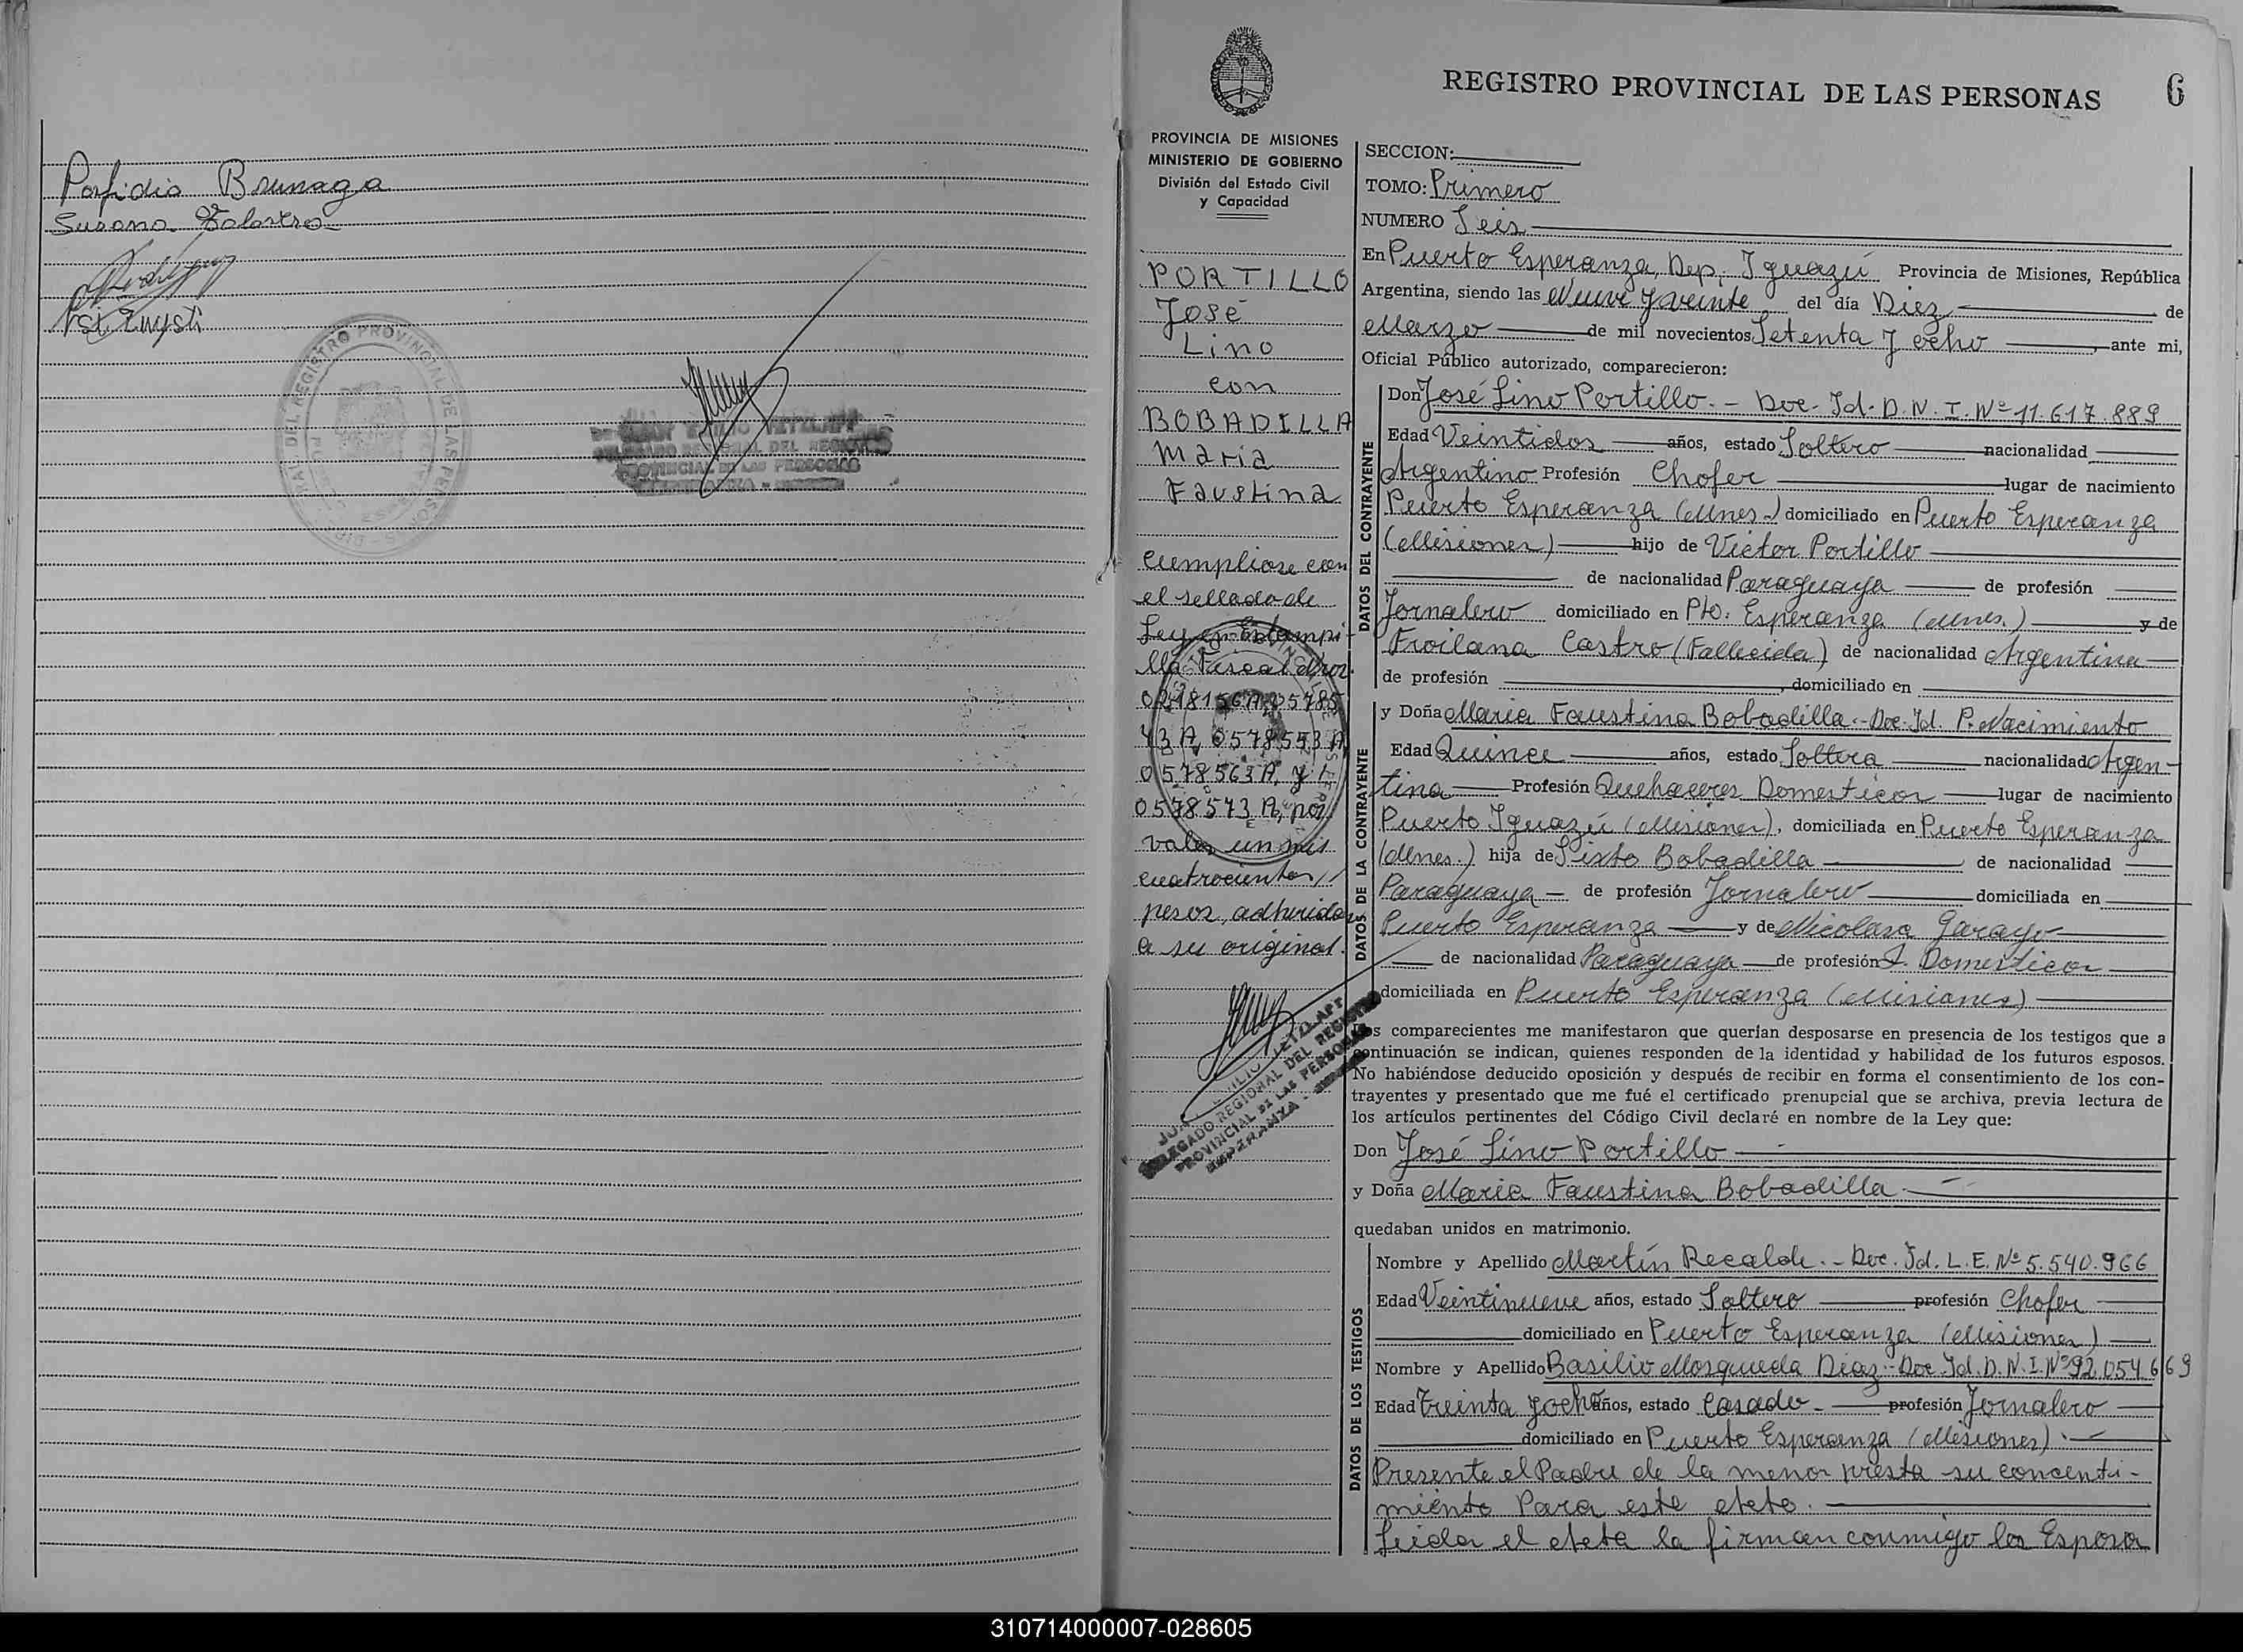 Porfidio Brunaga
Susana
REGISTRO PROVINCIAL DE LAS PERSONAS
6
PROVINCIA DE MISIONES
MINISTERIO DE GOBIERNO
División del Estado Civil
y Capacidad
PORTILLO
José
Lino
con
BOBADILLA
María
Faustina
Cumpliose con
el sellado de
Ley en Estampi-
lla Fiscal
0578563 A, y
0578573 A, por
valor un mil
cuatrocientos
pesos, adheridos
a su original.
DELEGADO REGIONAL DEL REGISTRO
PROVINCIAL DE LAS PERSONAS
ESPERANZA - MISIONES
SECCION:
TOMO: Primero
NUMERO Seis
En Puerto Esperanza, Dep. Iguazú Provincia de Misiones, República
Argentina, siendo las Nueve y veinte del día Diez de
Marzo de mil novecientos Setenta y ocho, ante mi,
Oficial Público autorizado, comparecieron:
DATOS DEL CONTRAYENTE
Don José Lino Portillo.- Doc. Id. D.N.I. Nº 11.617.889
Edad Veintidos años, estado Soltero nacionalidad
Argentino Profesión Chofer lugar de nacimiento
Puerto Esperanza (Mnes.) domiciliado en Puerto Esperanza
(Misiones) hijo de Víctor Portillo
de nacionalidad Paraguaya de profesión
Jornalero domiciliado en Pto. Esperanza (Mnes.) y de
Froilana Castro (Fallecida) de nacionalidad Argentina
de profesión , domiciliado en
DATOS DE LA CONTRAYENTE
y Doña María Faustina Bobadilla.- Doc. Id. P. Nacimiento
Edad Quince años, estado Soltera nacionalidad Argen-
tina Profesión Quehaceres Domesticos lugar de nacimiento
Puerto Iguazú (Misiones), domiciliada en Puerto Esperanza
(Mnes.) hija de Sixto Bobadilla de nacionalidad
Paraguaya de profesión Jornalero domiciliada en
Puerto Esperanza y de Nicolasa Garayo
de nacionalidad Paraguaya de profesión Domesticos
domiciliada en Puerto Esperanza (Misiones)
Los comparecientes me manifestaron que querían desposarse en presencia de los testigos que a
continuación se indican, quienes responden de la identidad y habilidad de los futuros esposos.
No habiéndose deducido oposición y después de recibir en forma el consentimiento de los con-
trayentes y presentado que me fué el certificado prenupcial que se archiva, previa lectura de
los artículos pertinentes del Código Civil declaré en nombre de la Ley que:
Don José Lino Portillo
y Doña María Faustina Bobadilla.
quedaban unidos en matrimonio.
DATOS DE LOS TESTIGOS
Nombre y Apellido Martín Recalde.- Doc. Id. L.E. Nº 5.540.966
Edad Veintinueve años, estado Soltero profesión Chofer
domiciliado en Puerto Esperanza (Misiones)
Nombre y Apellido Basilio Mosqueda Diaz.- Doc. Id. D.N.I. Nº 92.054.669
Edad Treinta y ocho años, estado Casado profesión Jornalero
domiciliado en Puerto Esperanza (Misiones).
Presente el Padre de la menor presta su concenti-
miento Para este Acto.
Leida el Acta la firman conmigo los Esposos
310714000007-028605